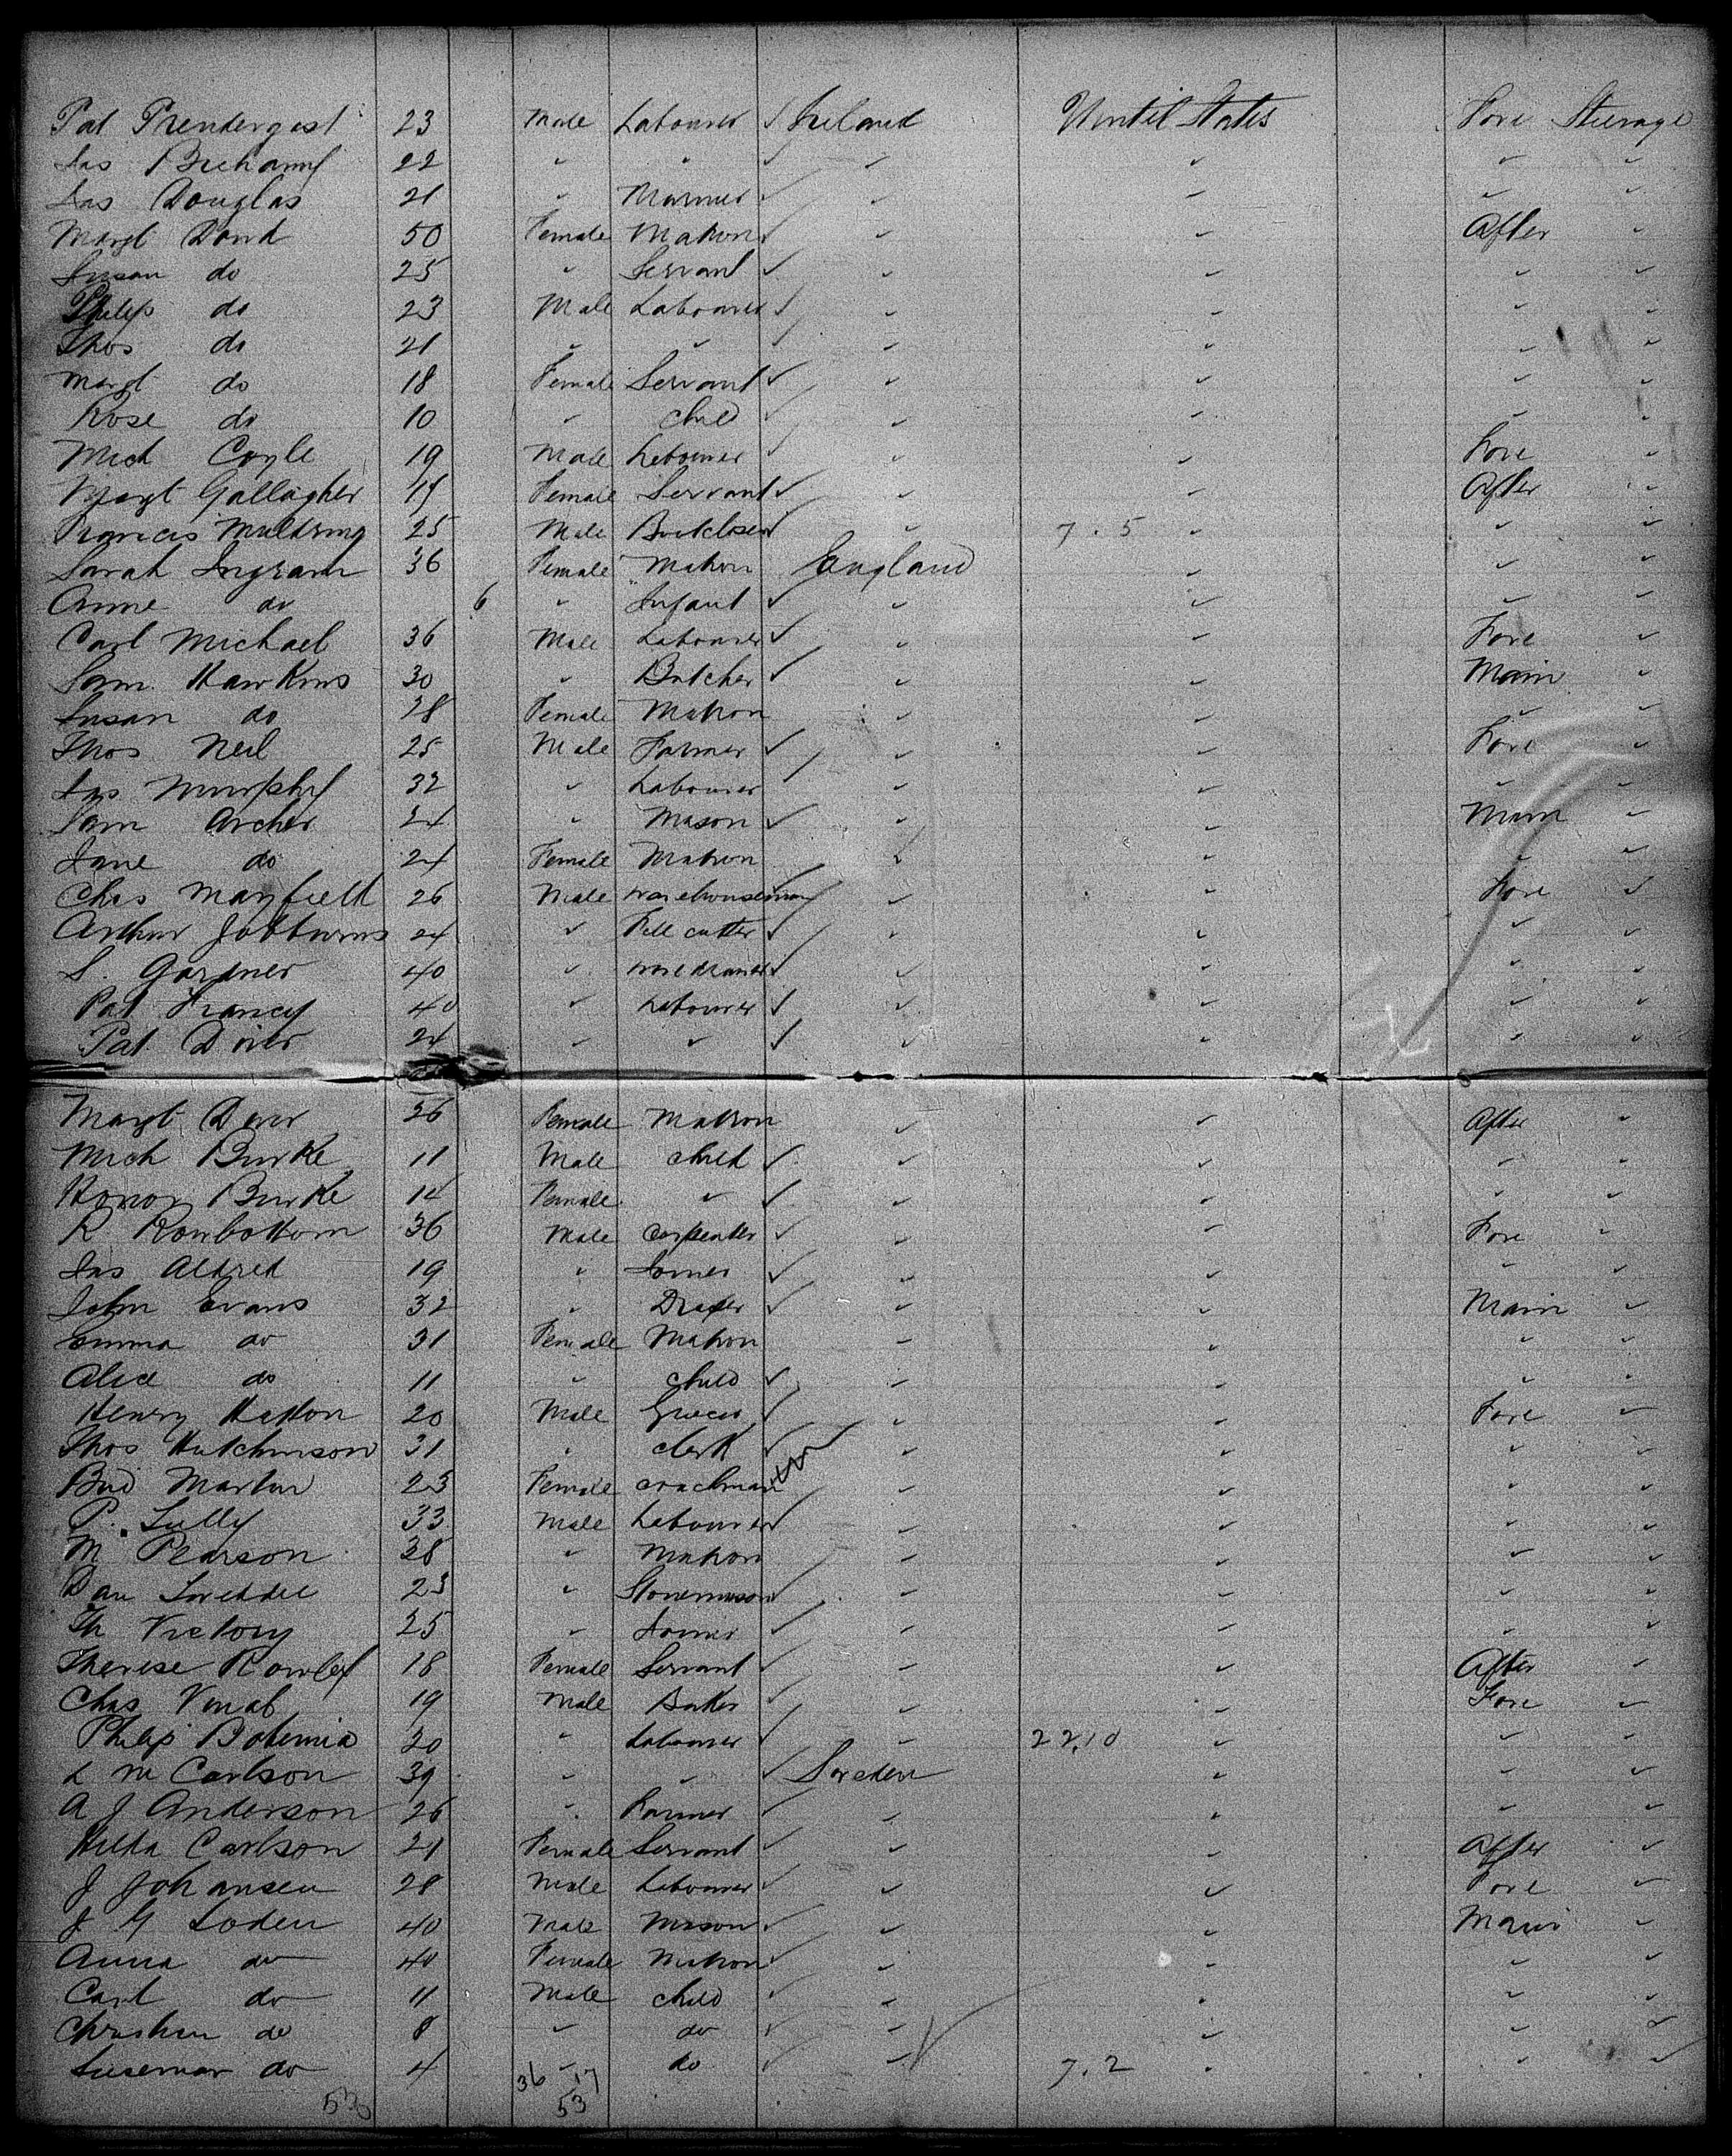 Pat Prendergast 23 Male Labourer ✓ Ireland United States Fore Steerage
Jas 22 " " ✓ " " " "
Jas Douglas 21 " Mariner ✓ " " " "
Margt 50 Female Matron ✓ " " After "
Susan do 25 " Servant ✓ " " " "
Philip do 23 Male Labourer ✓ " " " "
Thos do 21 " " ✓ " " " "
Margt do 18 Female Servant ✓ " " " "
Rose do 10 " child ✓ " " " "
Mich Coyle 19 Male Labourer ✓ " " Fore "
Margt Gallagher 19 Female Servant ✓ " " After "
Francis 25 Male ✓ " 7.5 " " "
Sarah Ingram 36 Female Matron England " " "
Anne do 6 " Infant ✓ " " " "
Carl Michael 36 Male Labourer ✓ " " Fore "
Sam. Hawkins 30 " Butcher ✓ " " Main "
Susan do 28 Female Matron " " " "
Thos Neil 25 Male Farmer ✓ " " Fore "
Jas Murphy 32 " Labourer ✓ " " " "
Sam Archer 24 " Mason ✓ " " Main "
Jane do 24 Female Matron " " " "
Chas Mayfield 26 Male warehouseman " " Fore "
Arthur 24 " File cutter ✓ " " " "
S. Gardner 40 " ✓ " " " "
Pat 40 " Labourer ✓ " " " "
Pat 24 " " ✓ " " " "
Margt 26 Female Matron " " After "
Mich Burke 11 Male child ✓ " " " "
Honor Burke 14 Female " ✓ " " " "
R Rowbottom 36 Male Carpenter ✓ " " Fore "
Jas Aldred 19 " Joiner ✓ " " " "
John Evans 32 " Draper ✓ " " Main "
Emma do 31 Female Matron " " " "
Alice do 11 " child ✓ " " " "
Henry Hatton 20 Male Grocer ✓ " " Fore "
Thos Hutchinson 31 " clerk ✓ " " " "
Brid Martin 23 Female coachman " " " "
P. Lully 33 Male Labourer ✓ " " " "
M Pearson 38 " Matron " " " "
Dan 23 " Stonemason ✓ " " " "
Th Victory 25 " Joiner ✓ " " " "
Therese Rowley 18 Female Servant ✓ " " After "
Chas 19 Male Baker ✓ " " Fore "
Philip Bohemia 20 " Labourer ✓ " 22,10 " " "
L M Carlson 39 " " ✓ Sweden " " "
A J Anderson 26 " Farmer ✓ " " " "
Hilda Carlson 21 Female Servant ✓ " " After "
J Johansen 28 Male Labourer ✓ " " Fore "
J G Loden 40 Male Mason ✓ " " Main "
Anna do 40 Female Matron ✓ " " " "
Carl do 11 Male child ✓ " " " "
Christian do 8 " do ✓ " " " "
do 4 " do ✓ " 7.2 " " "
36 17
53 53